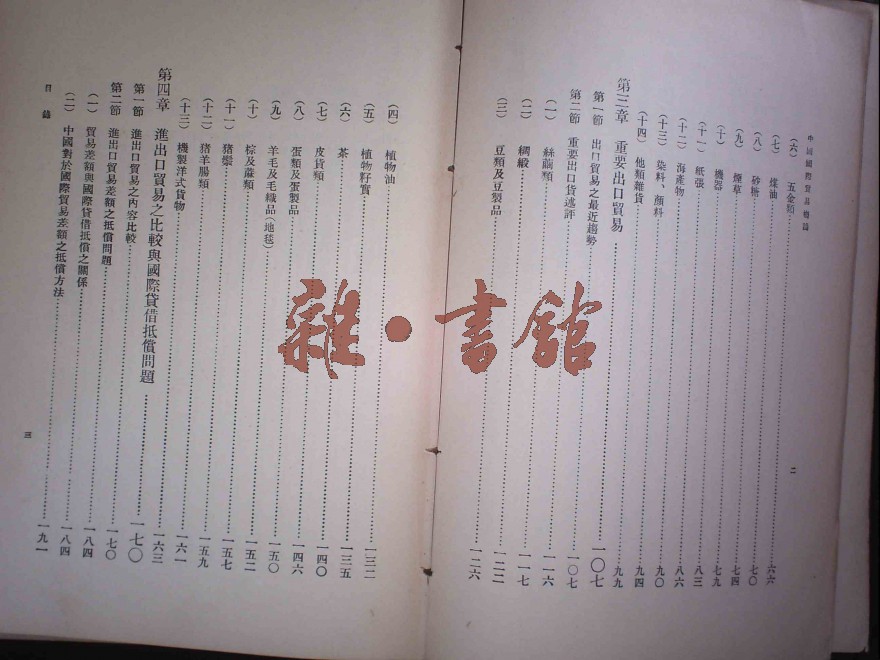 中國國際貿易概論
二
（六）　五金類……六六
（七）　煤油……七〇
（八）　砂糖……七四
（九）　煙草……七九
（十）　機器……八三
（十一）　紙張……八六
（十二）　海產物……九〇
（十三）　染料、顏料……九四
（十四）　他類雜貨……九九
第三章　重要出口貿易……一〇七
第一節　出口貿易之最近趨勢……一〇七
第二節　重要出口貨述評……一一六
（一）　絲繭類……一一七
（二）　綢緞……一二二
（三）　豆類及豆製品……一二六
（四）　植物油……一三二
（五）　植物籽實……一三五
（六）　茶……一四〇
（七）　皮貨類……一四六
（八）　蛋類及蛋製品……一五〇
（九）　羊毛及毛織品（地毯）……一五二
（十）　棕及蔴類……一五七
（十一）　豬鬃……一五九
（十二）　豬羊腸類……一六一
（十三）　機製洋式貨物……一六三
第四章　進出口貿易之比較與國際貸借抵償問題……一七〇
第一節　進出口貿易之內容比較……一七〇
第二節　進出口貿易差額之抵償問題……一八四
（一）　貿易差額與國際貸借抵償之關係……一八四
（二）　中國對於國際貿易差額之抵償方法……一九一
目錄
三
雜·書館